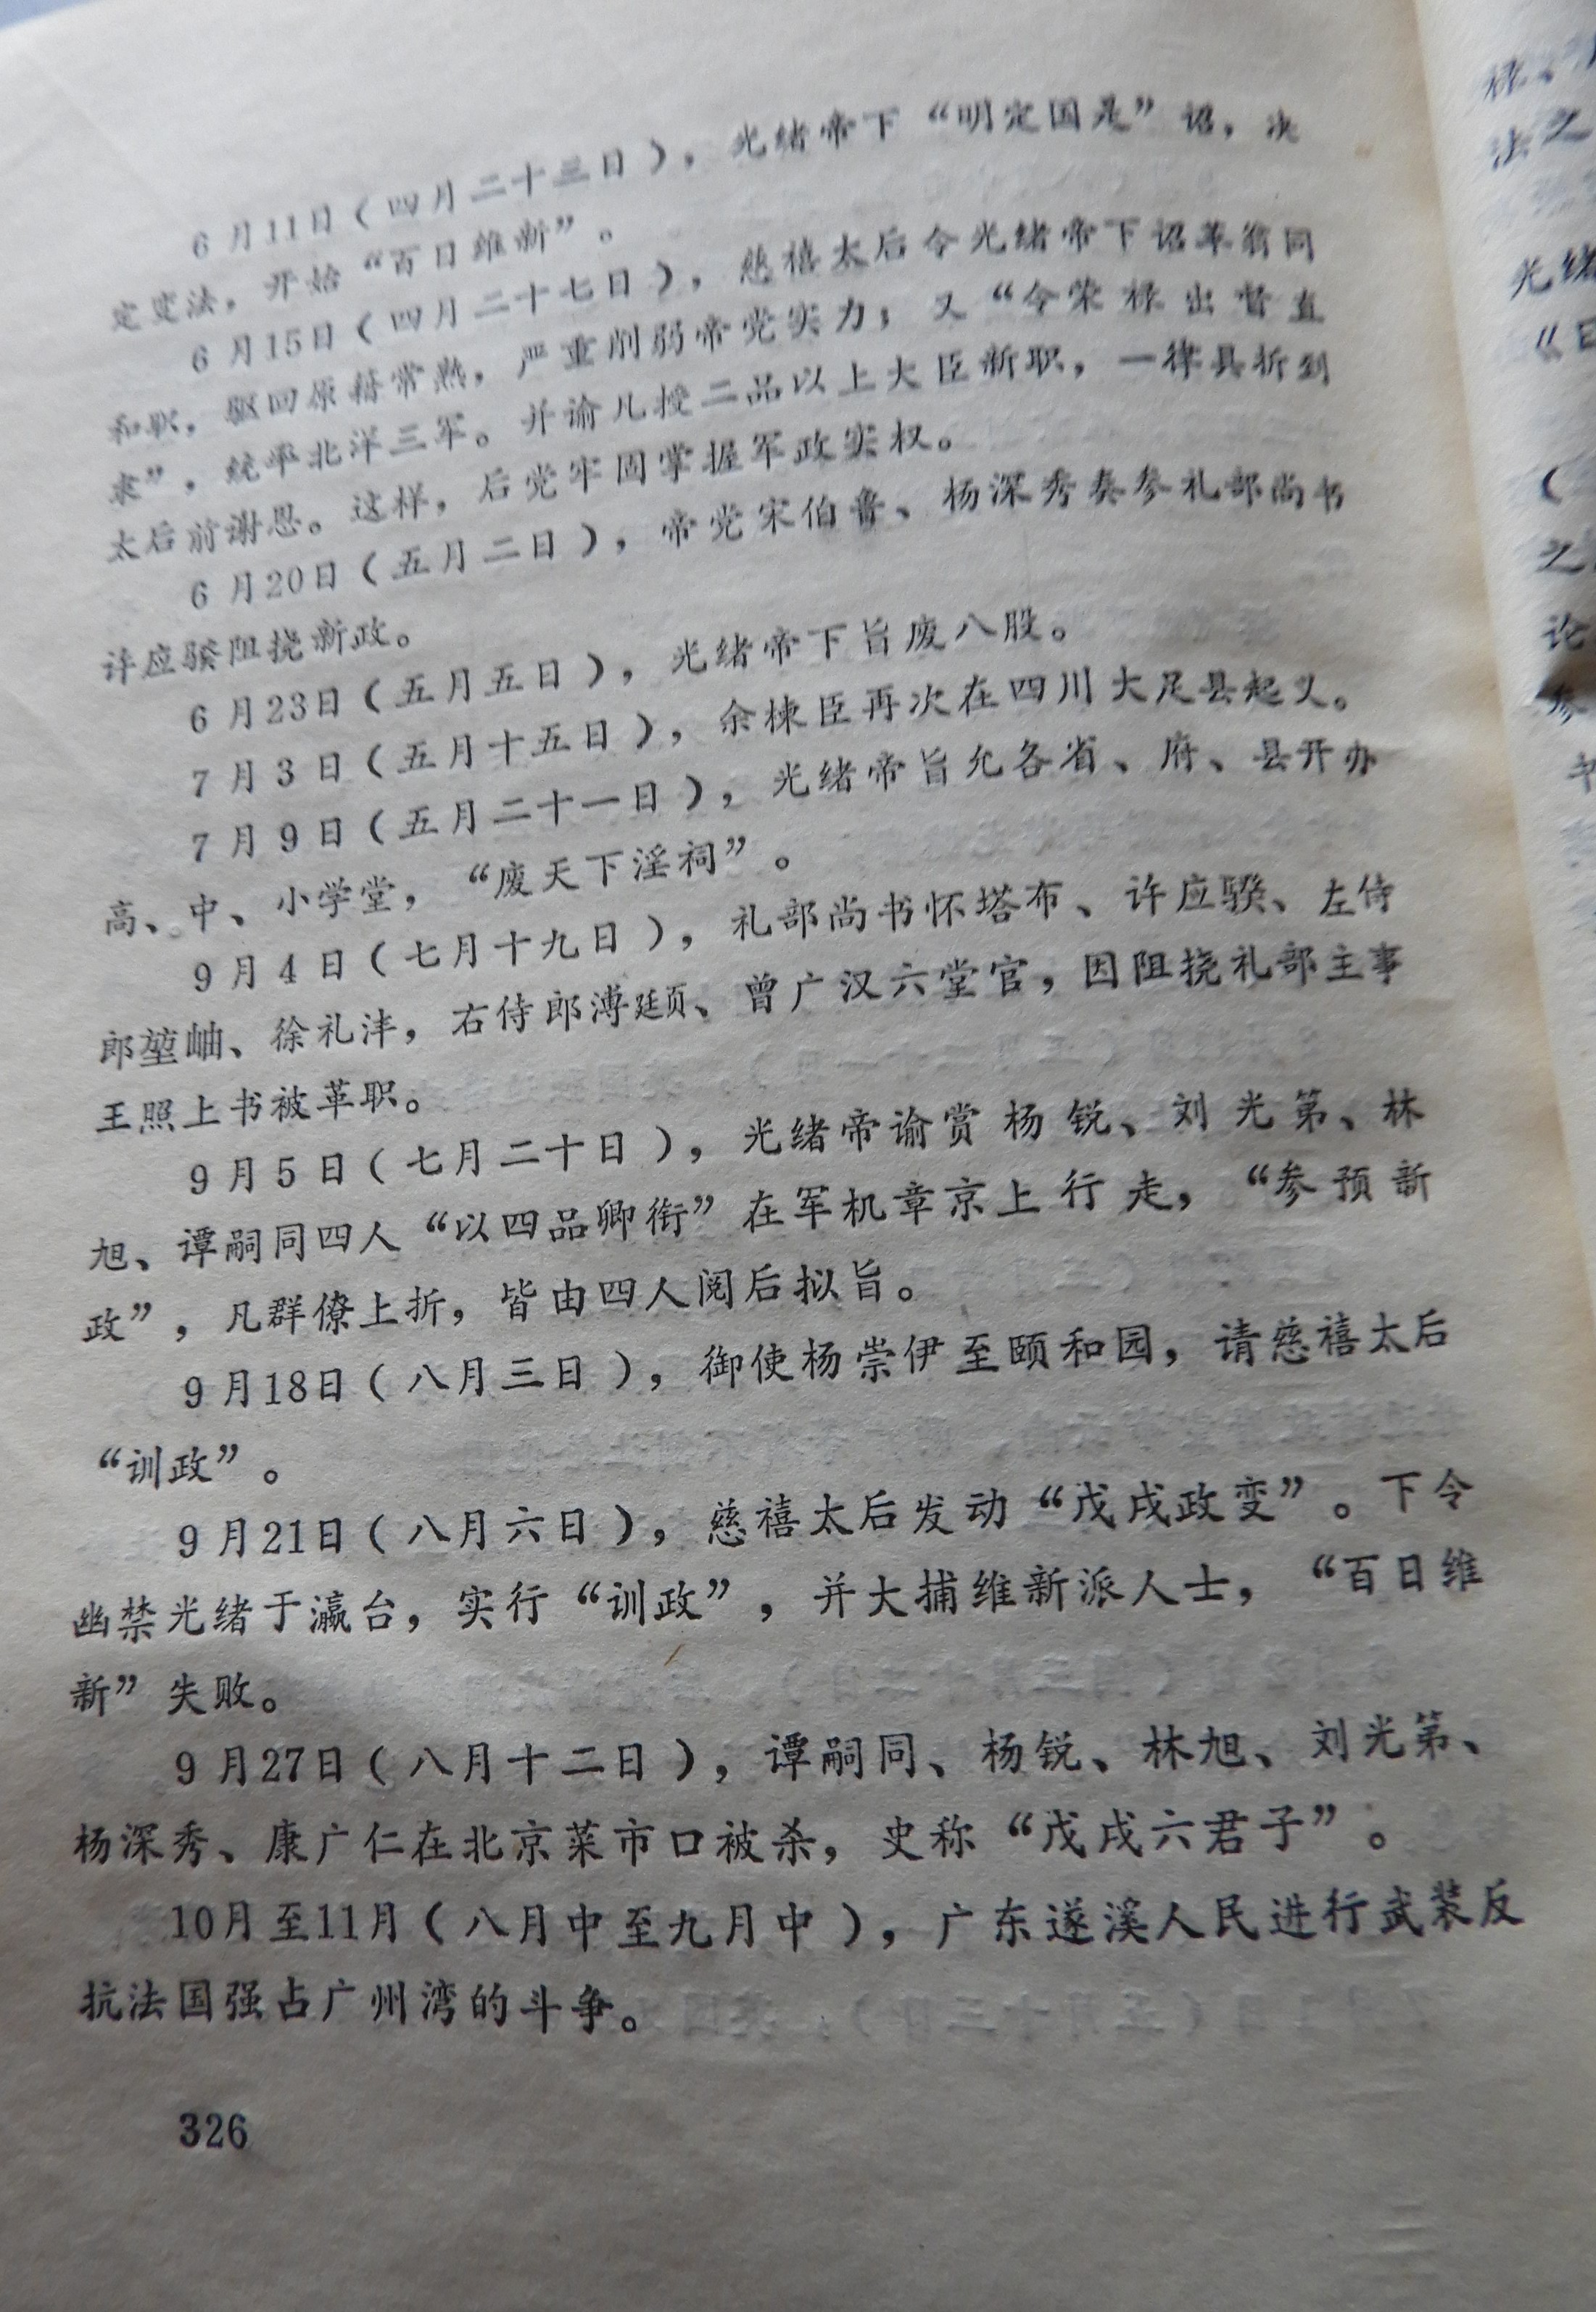 6月11日(四月二十三日),光绪帝下“明定国是”诏,决
定变法,开始“百日维新”。
6月15日(四月二十七日),慈禧太后令光绪帝下诏革翁同
和职,驱回原籍常熟,严重削弱帝党实力;又“令荣禄出督直
隶”,统率北洋三军。并谕凡授二品以上大臣新职,一律具折到
太后前谢恩。这样,后党牢固掌握军政实权。
6月20日(五月二日),帝党宋伯鲁、杨深秀奏参礼部尚书
许应骙阻挠新政。
6月23日(五月五日),光绪帝下旨废八股。
7月3日(五月十五日),余栋臣再次在四川大足县起义。
7月9日(五月二十一日),光绪帝旨允各省、府、县开办
高、中、小学堂,“废天下淫祠”。
9月4日(七月十九日),礼部尚书怀塔布、许应骙、左侍
郎堃岫、徐礼沣,右侍郎溥颋、曾广汉六堂官,因阻挠礼部主事
王照上书被革职。
9月5日(七月二十日),光绪帝谕赏杨锐、刘光第、林
旭、谭嗣同四人“以四品卿衔”在军机章京上行走,“参预新
政”,凡群僚上折,皆由四人阅后拟旨。
9月18日(八月三日),御使杨崇伊至颐和园,请慈禧太后
“训政”。
9月21日(八月六日),慈禧太后发动“戊戌政变”。下令
幽禁光绪于瀛台,实行“训政”,并大捕维新派人士,“百日维
新”失败。
9月27日(八月十二日),谭嗣同、杨锐、林旭、刘光第、
杨深秀、康广仁在北京菜市口被杀,史称“戊戌六君子”。
10月至11月(八月中至九月中),广东遂溪人民进行武装反
抗法国强占广州湾的斗争。
326
法之
光绪
《日
(
之
论
参